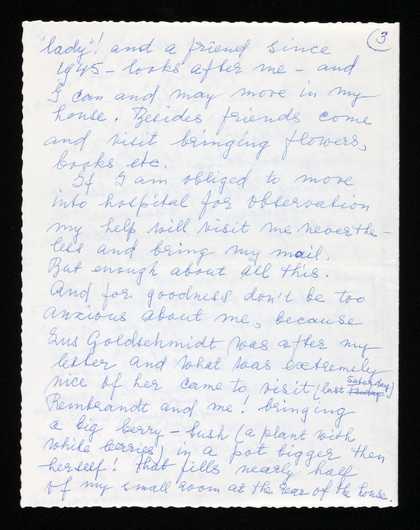 3
"lady"! and a friend since
1945 – looks after me – and
I can and may move in my
house. Besides friends come
and visit bringing flowers,
books etc.
If I am obliged to move
into hospital for observation
my help will visit me neverthe-
less and bring my mail.
But enough about all this.
And for goodness don't be too
anxious about me, because
Sus Goldschmidt was after my
letter and what was extremely
nice of her came to visit (last Saturday)
Rembrandt and me! bringing
a big berry – bush (a plant with
white berries) in a pot bigger then
herself! That fills nearly half
of my small room at the rear of the house